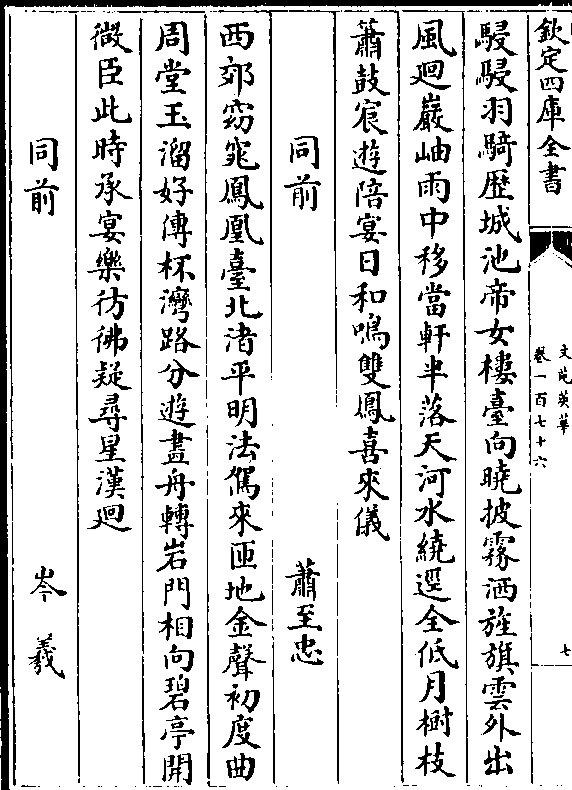 欽定四庫全書
文苑英華
卷一百七十六
七
駸駸羽騎歴城池帝女樓臺向曉披霧洒旌旗雲外出
風廻巖岫雨中移當軒半落天河水繞逕全低月樹枝
蕭鼓宸遊陪宴日和鳴雙鳳喜來儀
同前 蕭至忠
西郊窈窕鳳凰臺北渚平明法駕來匝地金聲初度曲
周堂玉溜好傳杯灣路分遊畫舟轉岩門相向碧亭開
微臣此時承宴樂彷彿疑尋星漢廻
同前 岑羲